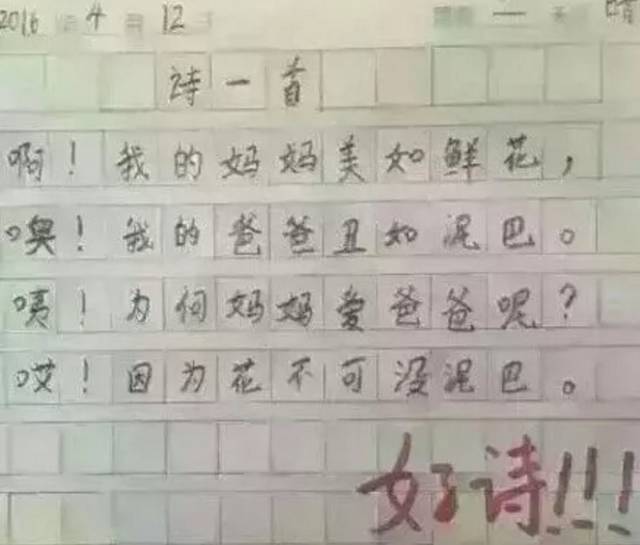 2016 4 12 一 晴
诗一首
啊！我的妈妈美如鲜花，
噢！我的爸爸丑如泥巴。
咦！为何妈妈爱爸爸呢？
哎！因为花不可没泥巴。
好诗!!!